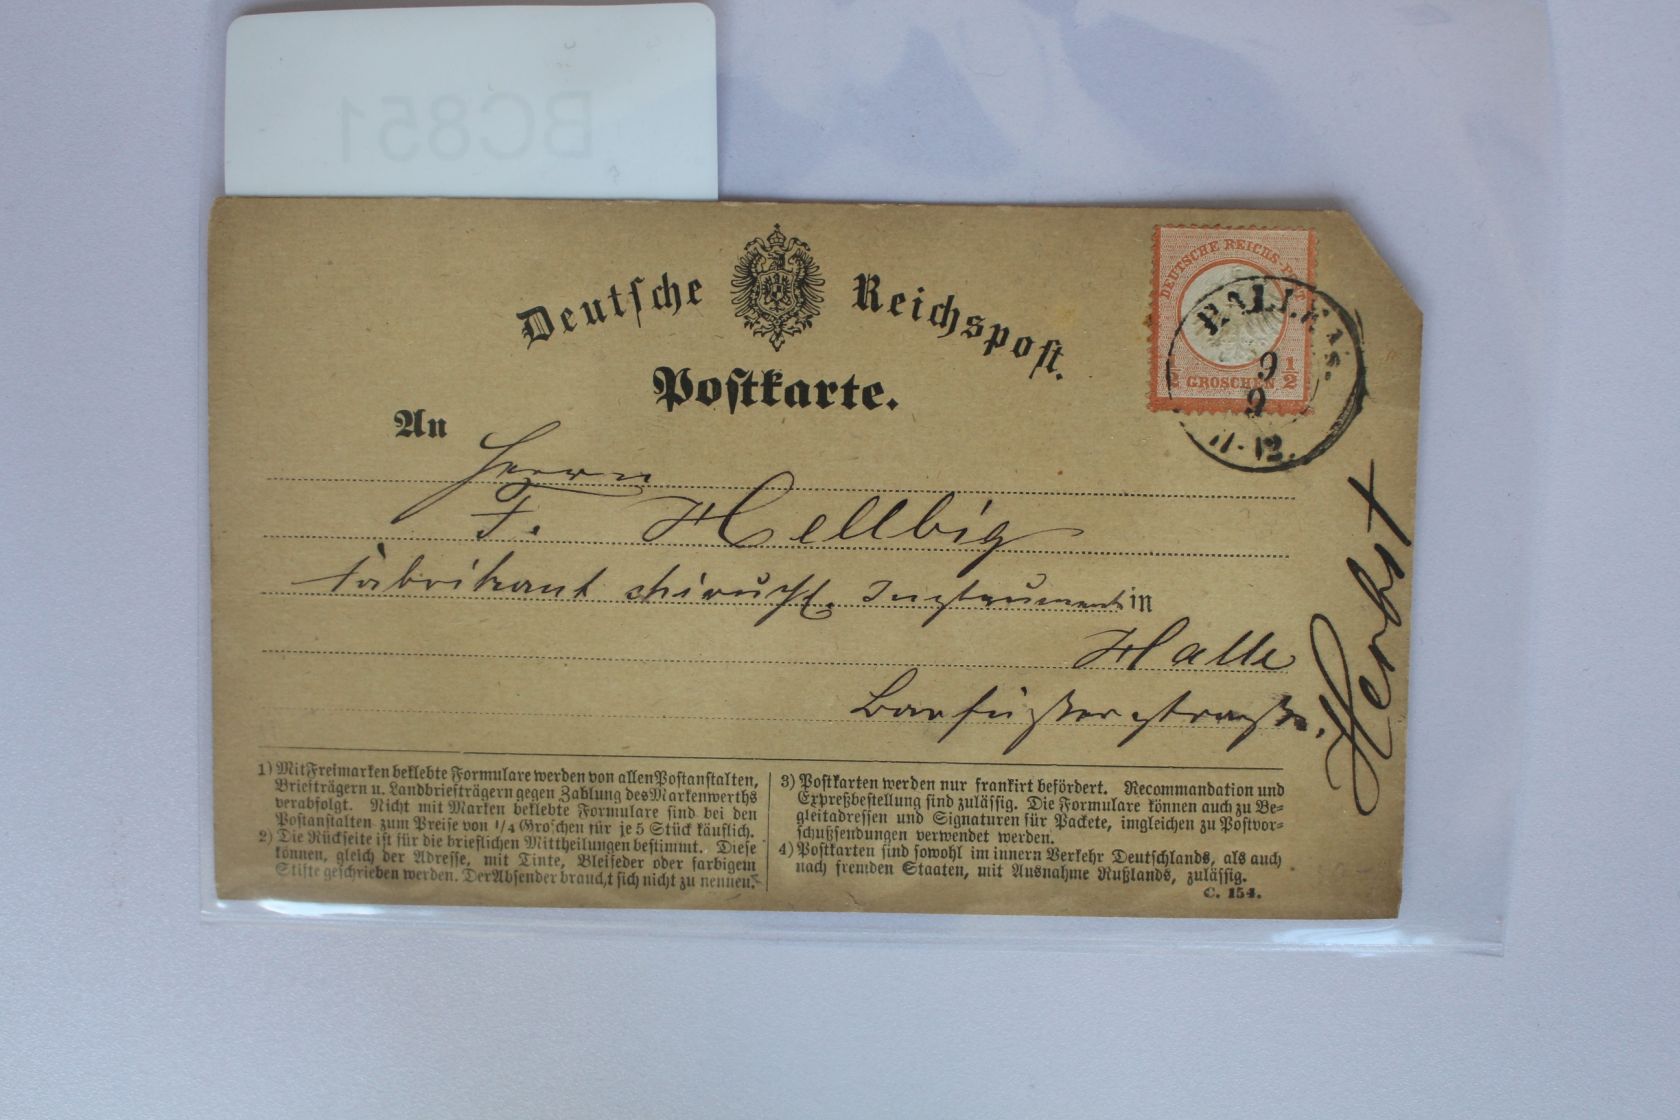 BC851
Deutsche Reichspost.
Postkarte.
DEUTSCHE REICHS-POST
1/2 GROSCHEN 1/2
9
9
11-12.
An
Herrn
F. Hellbig
Fabrikant chirurg. Instrumente in
Halle
Barfüßerstraße.
Herbst
1) Mit Freimarken beklebte Formulare werden von allen Postanstalten,
Briefträgern u. Landbriefträgern gegen Zahlung des Markenwerths
verabfolgt. Nicht mit Marken beklebte Formulare sind bei den
Postanstalten zum Preise von 1/4 Groschen für je 5 Stück käuflich.
2) Die Rückseite ist für die brieflichen Mittheilungen bestimmt. Diese
können, gleich der Adresse, mit Tinte, Bleifeder oder farbigem
Stifte geschrieben werden. Der Absender braucht sich nicht zu nennen.
3) Postkarten werden nur frankirt befördert. Recommandation und
Expreßbestellung sind zulässig. Die Formulare können auch zu Be-
gleitadressen und Signaturen für Packete, imgleichen zu Postvor-
schußsendungen verwendet werden.
4) Postkarten sind sowohl im innern Verkehr Deutschlands, als auch
nach fremden Staaten, mit Ausnahme Rußlands, zulässig.
C. 154.